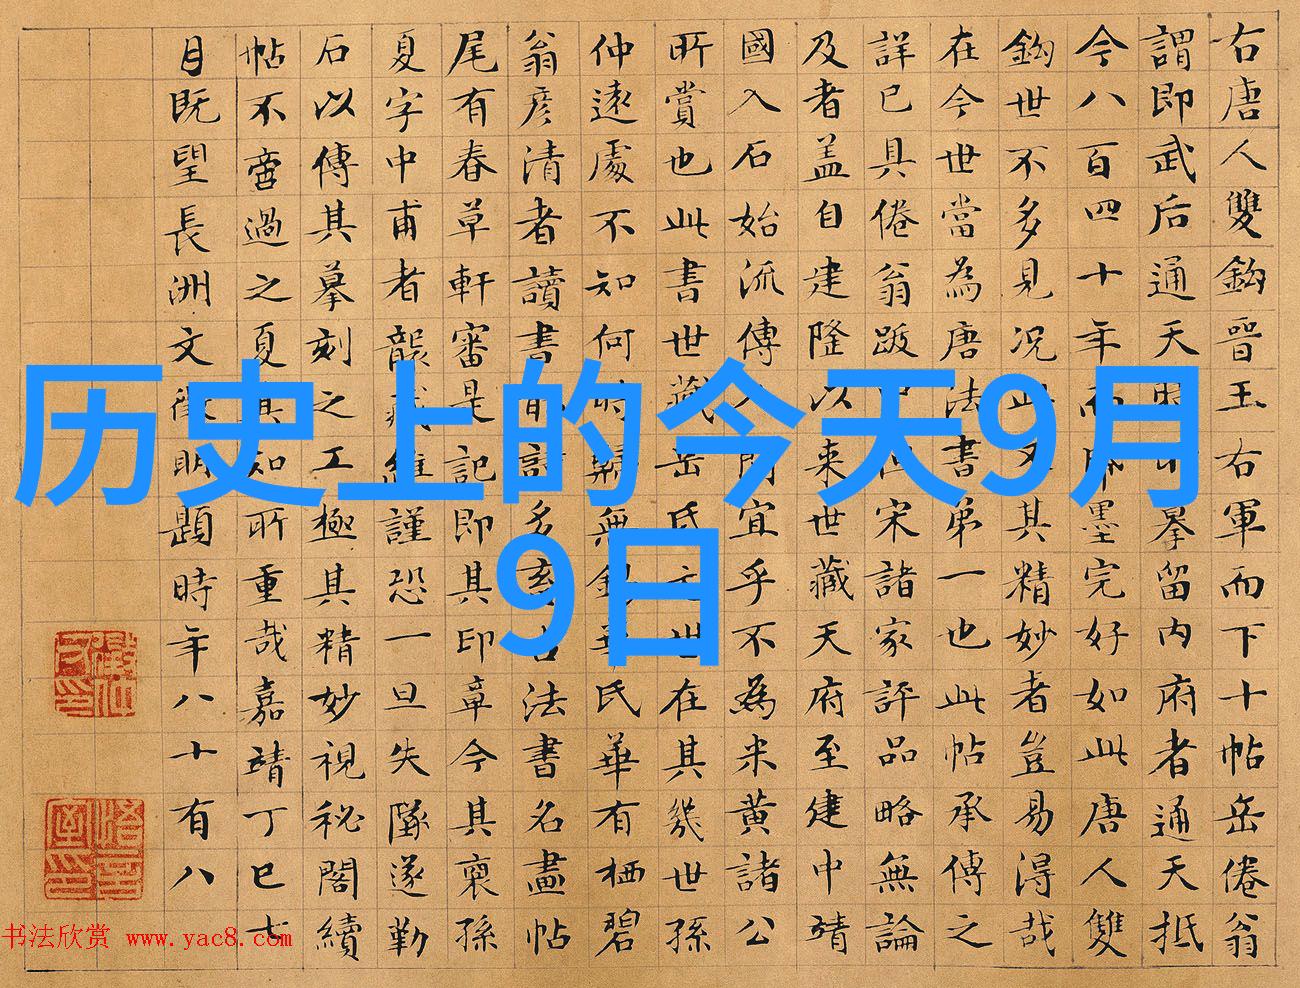 历史上的今天9月
9日
右唐人雙鈎晉王右軍而下十帖岳倦翁
謂即武后通天時所摹留内府者通天抵
今八百四十年而帋墨完好如此唐人雙
鈎世不多見况此又其精妙者豈易得哉
在今世當為唐法書第一也此帖承傳之
詳已具倦翁跋中但宋諸家評品略無論
及者盖自建隆以来世藏天府至建中靖
國入石始流傳人間宜乎不為米黄諸公
所賞也此書世藏岳氏元世在其幾世孫
仲遠處不知何時歸無錫華氏華有栖碧
翁彦清者讀書能詩多玄古法書名畫帖
尾有春草軒審是記即其印章今其裔孫
夏字中甫者襲藏維謹恐一旦失墜遂勒
石以傳其摹刻之工極其精妙視秘閣續
帖不啻過之夏其知所重哉嘉靖丁巳七
月既望長洲文徵明題時年八十有八
书法欣赏 www.yac8.com